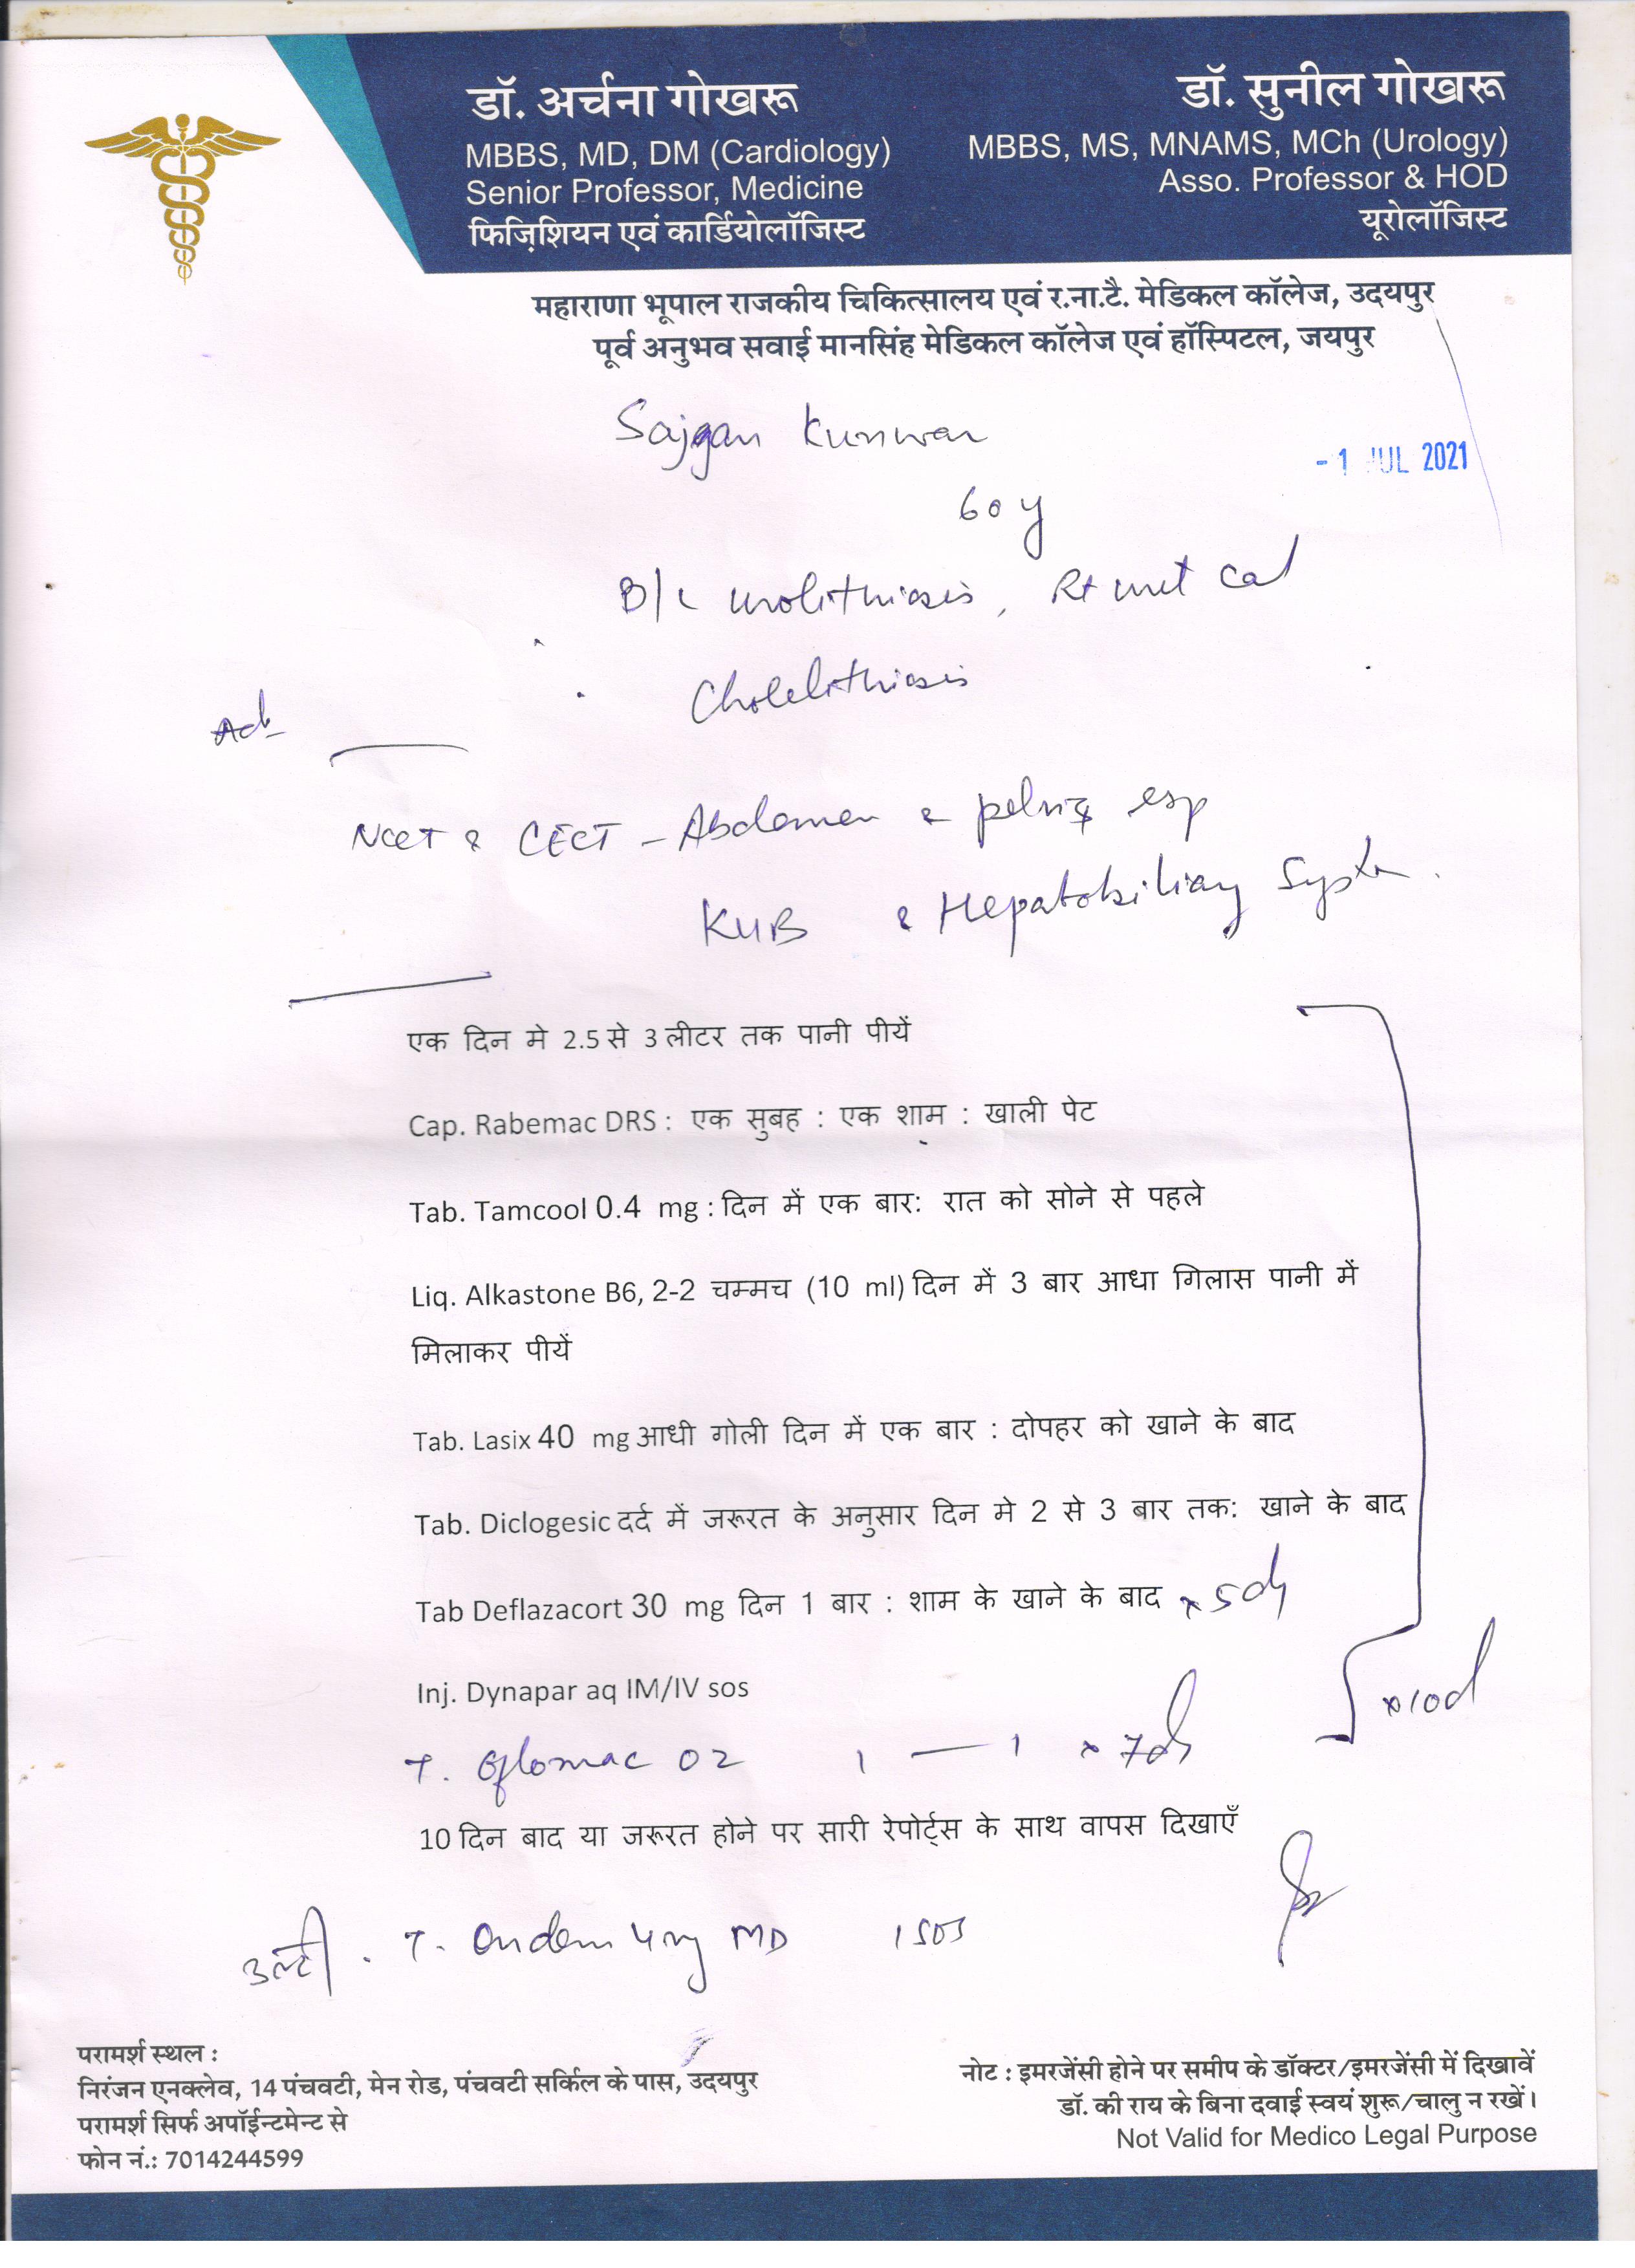 डॉ. अर्चना गोखरू
MBBS, MD, DM (Cardiology)
Senior Professor, Medicine
फिज़िशियन एवं कार्डियोलॉजिस्ट
डॉ. सुनील गोखरू
MBBS, MS, MNAMS, MCh (Urology)
Asso. Professor & HOD
यूरोलॉजिस्ट
महाराणा भूपाल राजकीय चिकित्सालय एवं र.ना.टै. मेडिकल कॉलेज, उदयपुर
पूर्व अनुभव सवाई मानसिंह मेडिकल कॉलेज एवं हॉस्पिटल, जयपुर
Sajgan Kunwar
- 1 JUL 2021
60 y
B/L urolithiasis, Rt
Cholelithiasis
NCCT & CECT - Abdomen & pelvis esp
KUB & Hepatobiliary System.
एक दिन मे 2.5 से 3 लीटर तक पानी पीयें
Cap. Rabemac DRS : एक सुबह : एक शाम : खाली पेट
Tab. Tamcool 0.4 mg : दिन में एक बार: रात को सोने से पहले
Liq. Alkastone B6, 2-2 चम्मच (10 ml) दिन में 3 बार आधा गिलास पानी में
मिलाकर पीयें
Tab. Lasix 40 mg आधी गोली दिन में एक बार : दोपहर को खाने के बाद
Tab. Diclogesic दर्द में जरूरत के अनुसार दिन मे 2 से 3 बार तक: खाने के बाद
Tab Deflazacort 30 mg दिन 1 बार : शाम के खाने के बाद x 5d
Inj. Dynapar aq IM/IV sos
x 10d
T. Oflomac OZ 1 — 1 x 7d
10 दिन बाद या जरूरत होने पर सारी रेपोर्ट्स के साथ वापस दिखाएँ
उल्टी . T. Ondem 4mg MD 1 SOS
परामर्श स्थल :
निरंजन एनक्लेव, 14 पंचवटी, मेन रोड, पंचवटी सर्किल के पास, उदयपुर
परामर्श सिर्फ अपॉईन्टमेन्ट से
फोन नं.: 7014244599
नोट : इमरजेंसी होने पर समीप के डॉक्टर/इमरजेंसी में दिखावें
डॉ. की राय के बिना दवाई स्वयं शुरू/चालु न रखें।
Not Valid for Medico Legal Purpose